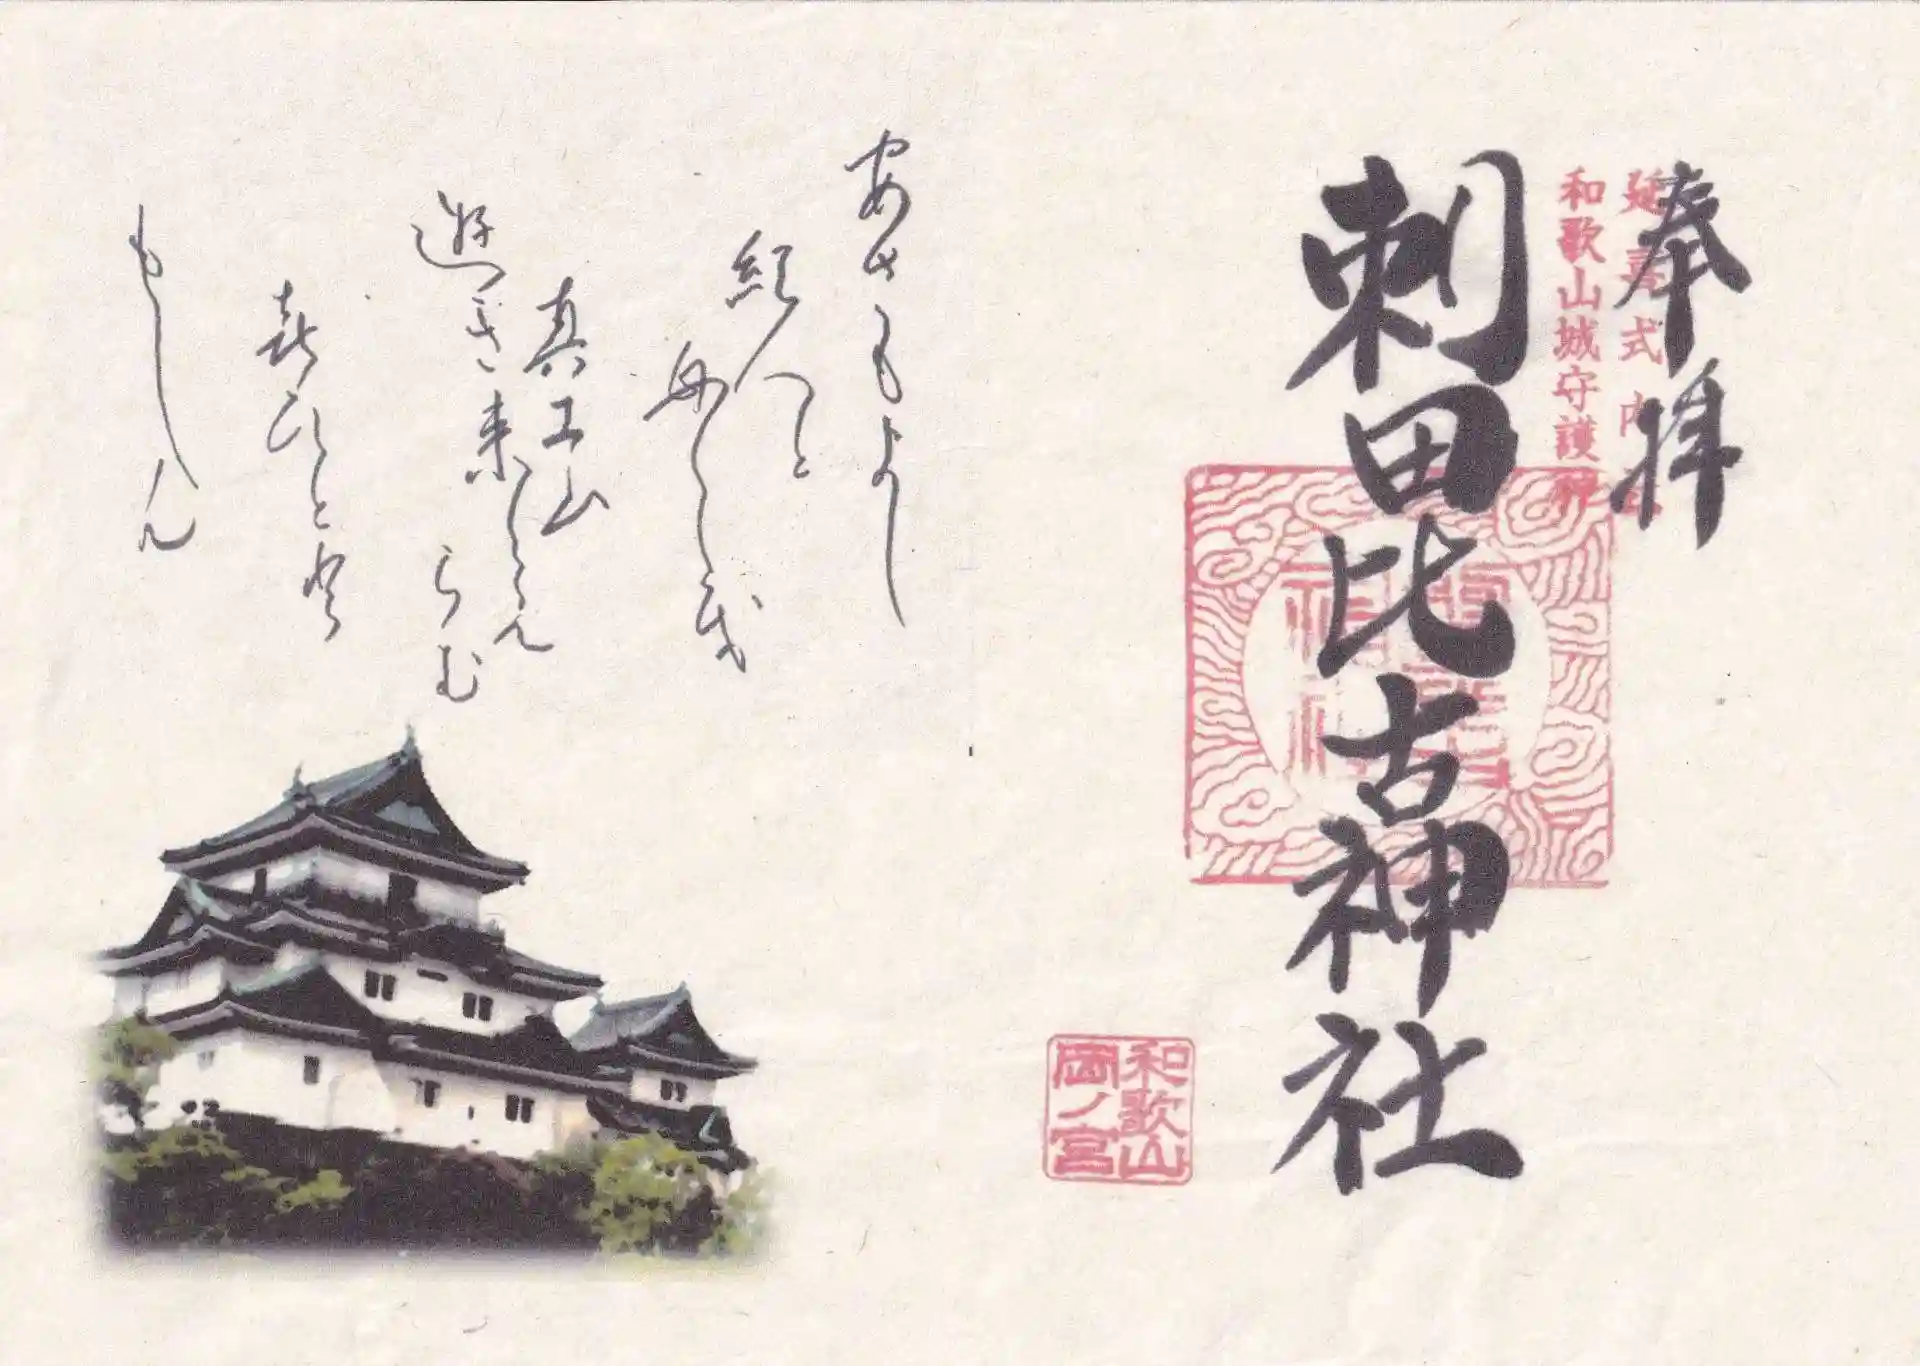 奉拝
延喜式内社
和歌山城守護神
刺田比古神社
和歌山
岡ノ宮
安さもよし
紀人と
母しも
真土山
遊き来と見
らむ
喜ひと登
もしも